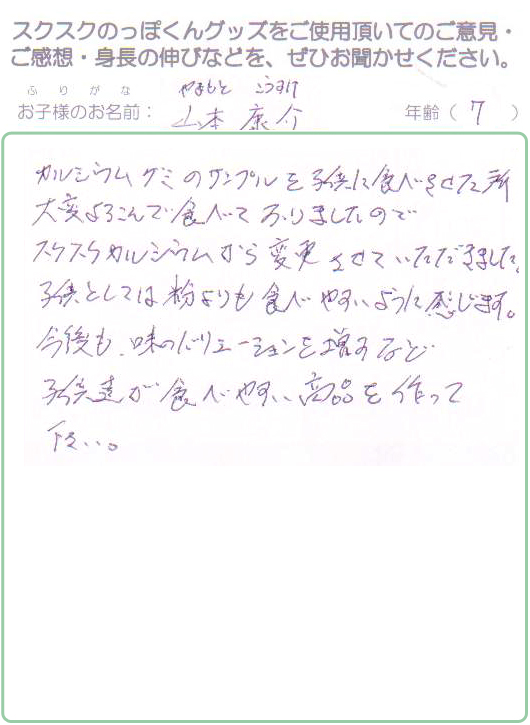 スクスクのっぽくんグッズをご使用頂いてのご意見・
ご感想・身長の伸びなどを、ぜひお聞かせください。
ふりがな やまもと こうすけ
お子様のお名前： 山本 康介 年齢（ 7 ）
カルシウムグミのサンプルを子供に食べさせた所
大変よろこんで食べておりましたので
スクスクカルシウムから変更させていただきました。
子供としては粉よりも食べやすいように感じます。
今後も、味のバリエーションを増すなど
子供達が食べやすい商品を作って
下さい。